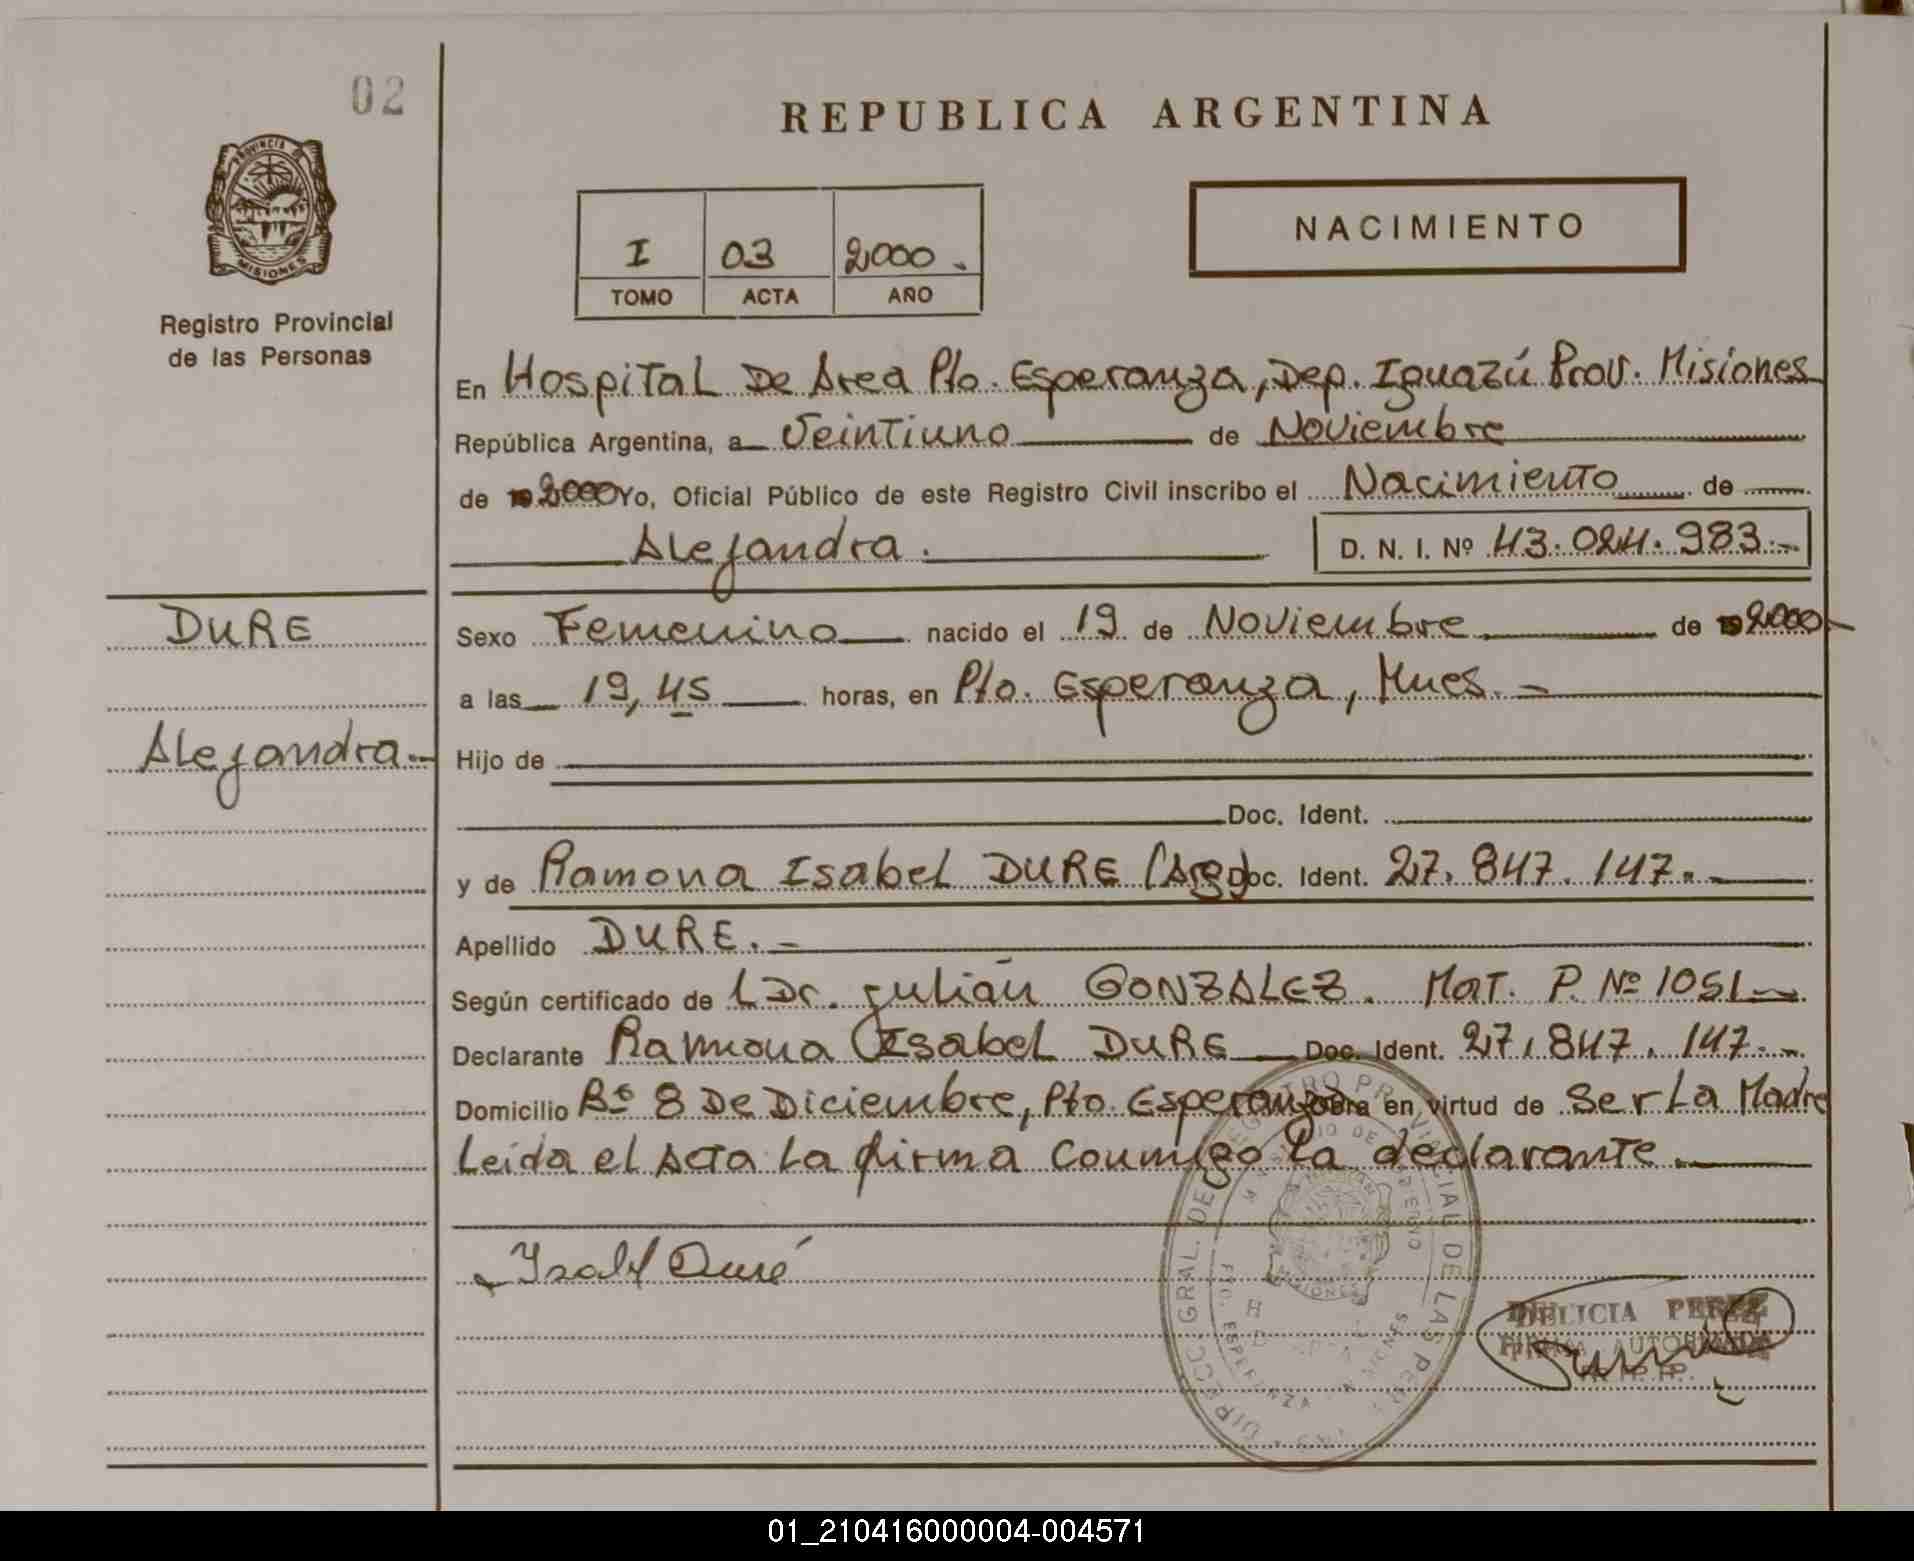 02
REPUBLICA ARGENTINA
PROVINCIA DE
MISIONES
Registro Provincial
de las Personas
I 03 2000.
TOMO ACTA AÑO
NACIMIENTO
En Hospital De Area Pto. Esperanza, Dep. Iguazú Prov. Misiones
República Argentina, a Veintiuno de Noviembre
de 2000 Yo, Oficial Público de este Registro Civil inscribo el Nacimiento de
Alejandra.
D. N. I. Nº 43.024.983.-
DURE
Alejandra.-
Sexo Femenino nacido el 19 de Noviembre de 2000-
a las 19,45 horas, en Pto. Esperanza, Mnes.-
Hijo de
Doc. Ident.
y de Ramona Isabel DURE (Arg) Doc. Ident. 27.847.147.-
Apellido DURE.-
Según certificado de Dr. Julián GONZALEZ. Mat. P. Nº 1051-
Declarante Ramona Isabel DURE Doc. Ident. 27.847.147.-
Domicilio Bº 8 De Diciembre, Pto. Esperanza Obra en virtud de Ser La Madre
Leída el Acta La firma Conmigo la declarante.
Isabel Duré
DIRECC. GRAL. DEL REGISTRO PROVINCIAL DE LAS PERSONAS
MINISTERIO DE GOBIERNO
MISIONES
PTO. ESPERANZA MISIONES
DELICIA PEREZ
FIRMA AUTORIZADA
01_210416000004-004571